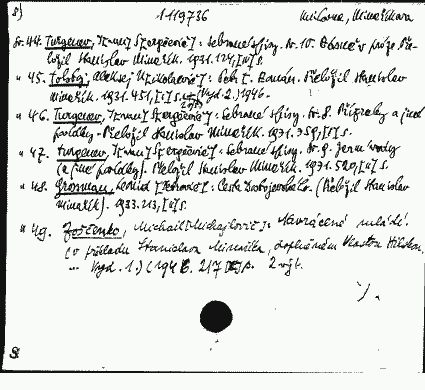 8) 1119736 Milena, Minaříkova
Sv. 44. Turgenev, Ivan Sergějevič: Sebrané spisy. Sv. 10. Básně v próze. Pře-
ložil Stanislav Minařík. 1931. 124, [IV] s.
" 45. Tolstoj, Aleksej Nikolaevič: Petr I. Román. Přeložil Stanislav
Minařík. 1931. 451, [1] s. (Vyd. 2.) 1946.
" 46. Turgenev, Ivan Sergějevič: Sebrané spisy. Sv. 8. Přízraky a jiné
povídky. Přeložil Stanislav Minařík. 1931. 359, [1] s.
" 47. Turgenev, Ivan Sergějevič: Sebrané spisy. Sv. 9. Jarní vody
(a jiné povídky). Přeložil Stanislav Minařík. 1931. 520, [IV] s.
" 48. Grosman, Leonid Petrovič: Cesta Dostojevského. (Přeložil Stanislav
Minařík). 1933. 213, [1] s.
" 49. Zoščenko, Michail Michajlovič: Navrácené mládí.
(V překladu Stanislava Minaříka, doplněném Vlastou
Vyd. 1.) (194 217 s. 2 výt.